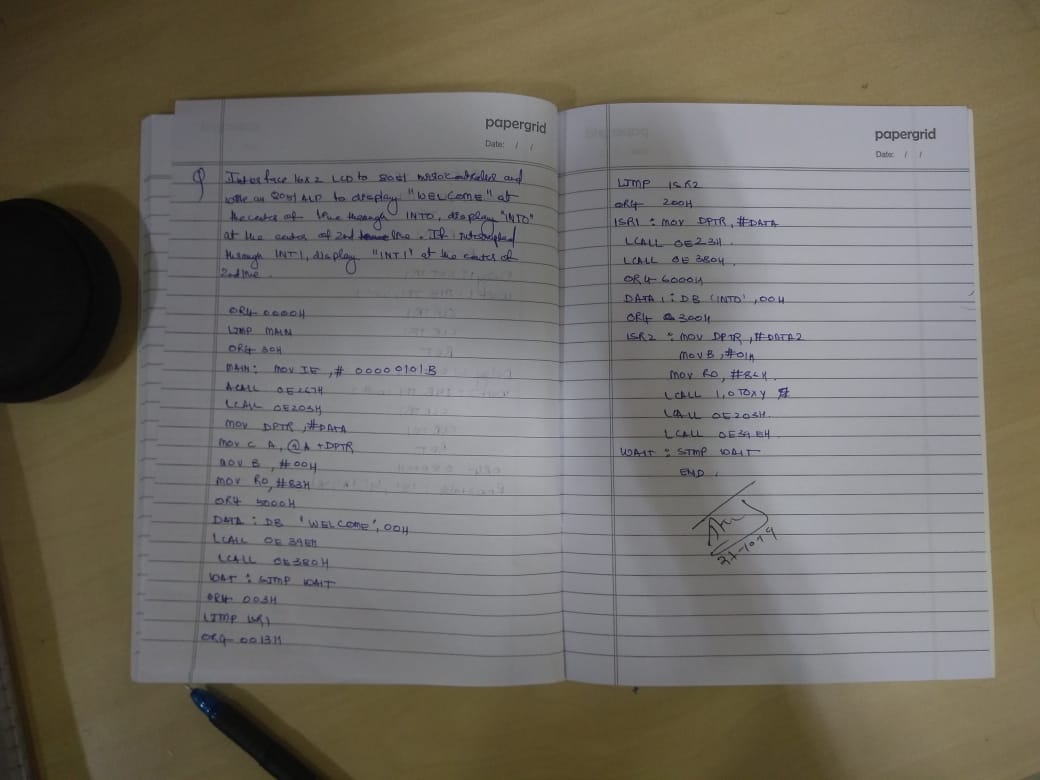 papergrid
Date: / /
Q Interface 16x2 LCD to 8051 microcontroller and
write an 8051 ALP to display "WELCOME" at
the center of line through INT0, display "INT0"
at the center of 2nd line. If interrupted
through INT1, display "INT1" at the center of
2nd line.
ORG 0000H
LJMP MAIN
ORG 30H
MAIN: MOV IE, # 00000101B
ACALL
LCALL 0E203H
MOV DPTR, #DATA
MOV C A, @A+DPTR
MOV B, #00H
MOV R0, #83H
ORG 5000H
DATA: DB 'WELCOME', 00H
LCALL 0E39EH
LCALL 0E380H
WAIT: SJMP WAIT
ORG 003H
LJMP ISR1
ORG 0013H
papergrid
Date: / /
LJMP ISR2
ORG 200H
ISR1: MOV DPTR, #DATA
LCALL 0E23H.
LCALL 0E380H.
ORG 6000H
DATA 1: DB 'INT0', 00H
ORG 300H
ISR2: MOV DPTR, #DATA2
MOV B, #01H
MOV R0, #84H.
LCALL 1,0 TOXY
LCALL 0E203H.
LCALL 0E39EH
WAIT: SJMP WAIT
END.